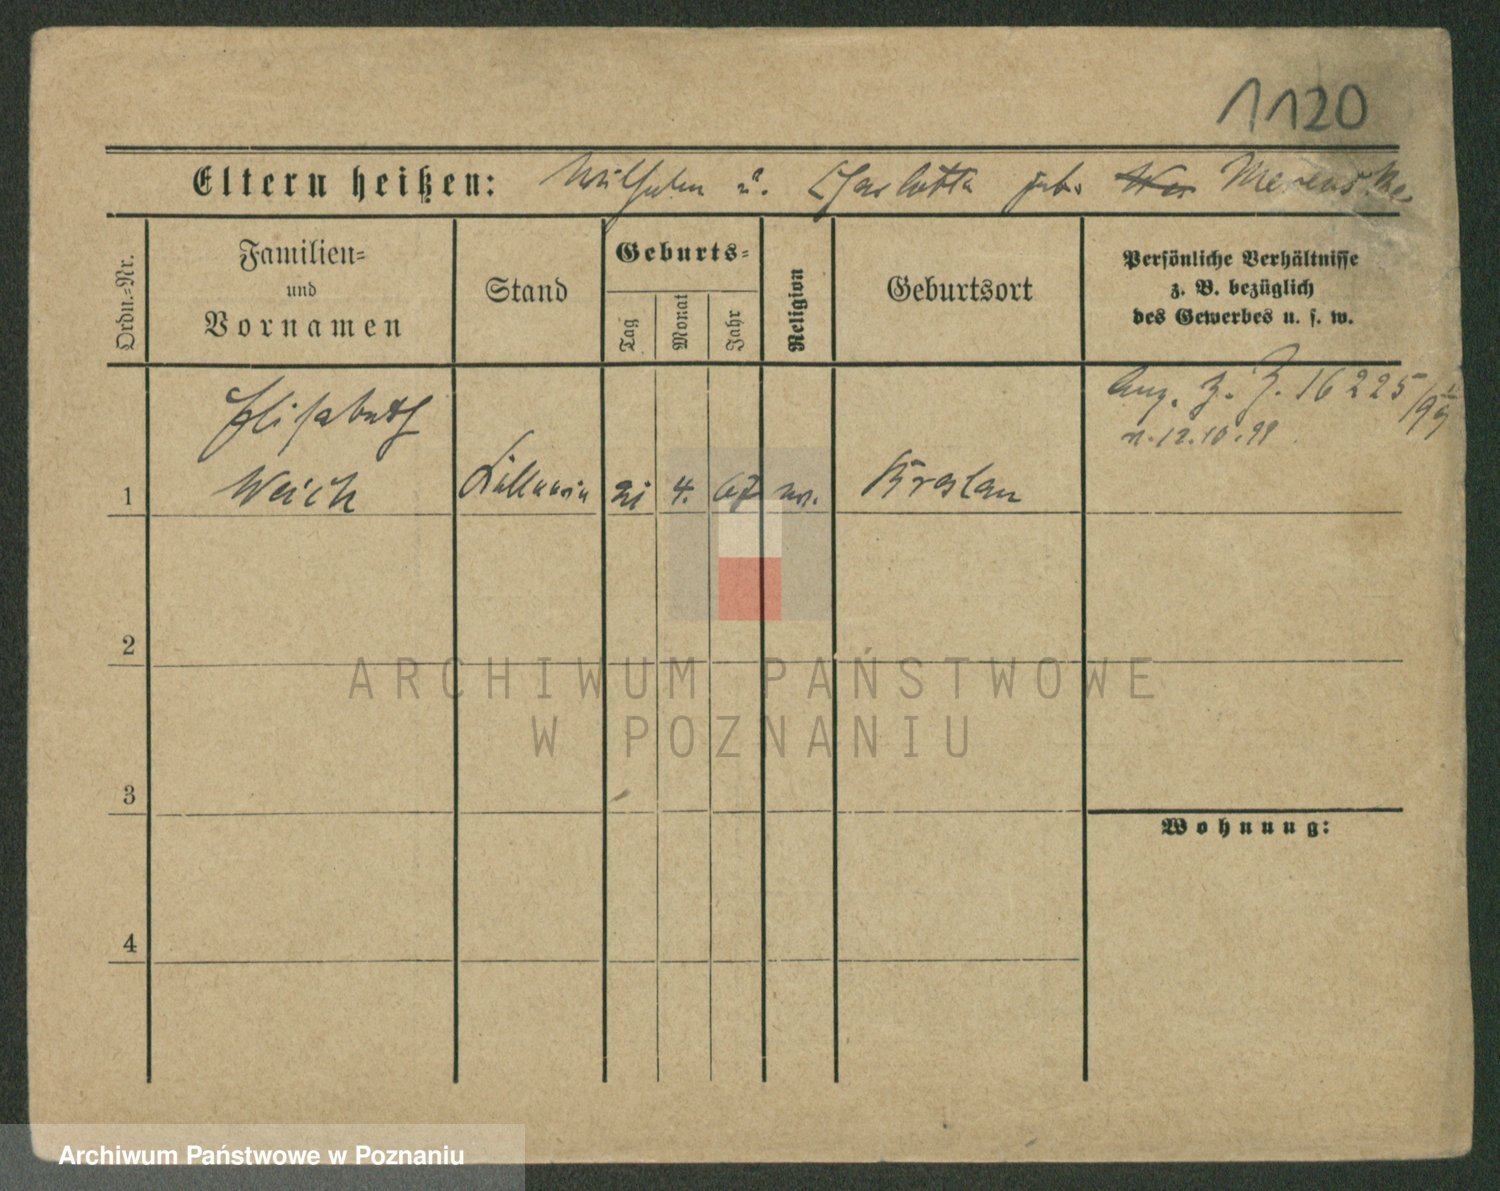 1120
Eltern heißen: Wilhelm u. Charlotte geb. Merenski
Ordn.=Nr.
Familien=
und
Vornamen
Stand
Geburts=
Tag
Monat
Jahr
Religion
Geburtsort
Persönliche Verhältnisse
z. B. bezüglich
des Gewerbes u. s. w.
Elisabeth
Weich
1
21 4. 67 Breslau
Ang. z. Z. 16225/99
v. 12.10.99
2
3
4
Wohnung:
ARCHIWUM PAŃSTWOWE
W POZNANIU
Archiwum Państwowe w Poznaniu